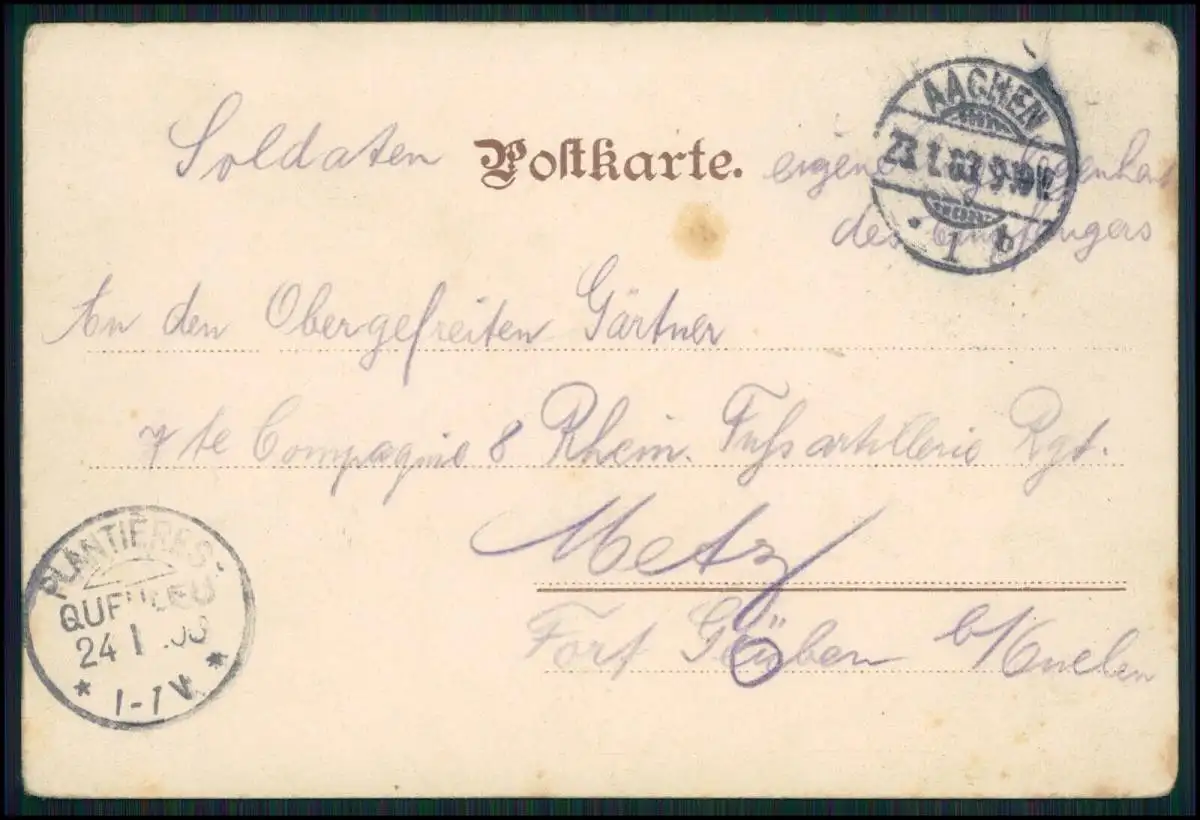 AACHEN
23.1.03.9-10V.
* 1 b
Soldaten Postkarte. eigene Angelegenheit
des Empfängers
An den Obergefreiten Gärtner
7te Compagnie 8 Rhein. Fußsartillerie Rgt.
Metz
Fort b/
PLANTIÈRES-
QUEULEU
24 1 .03
* 1-7 V. *